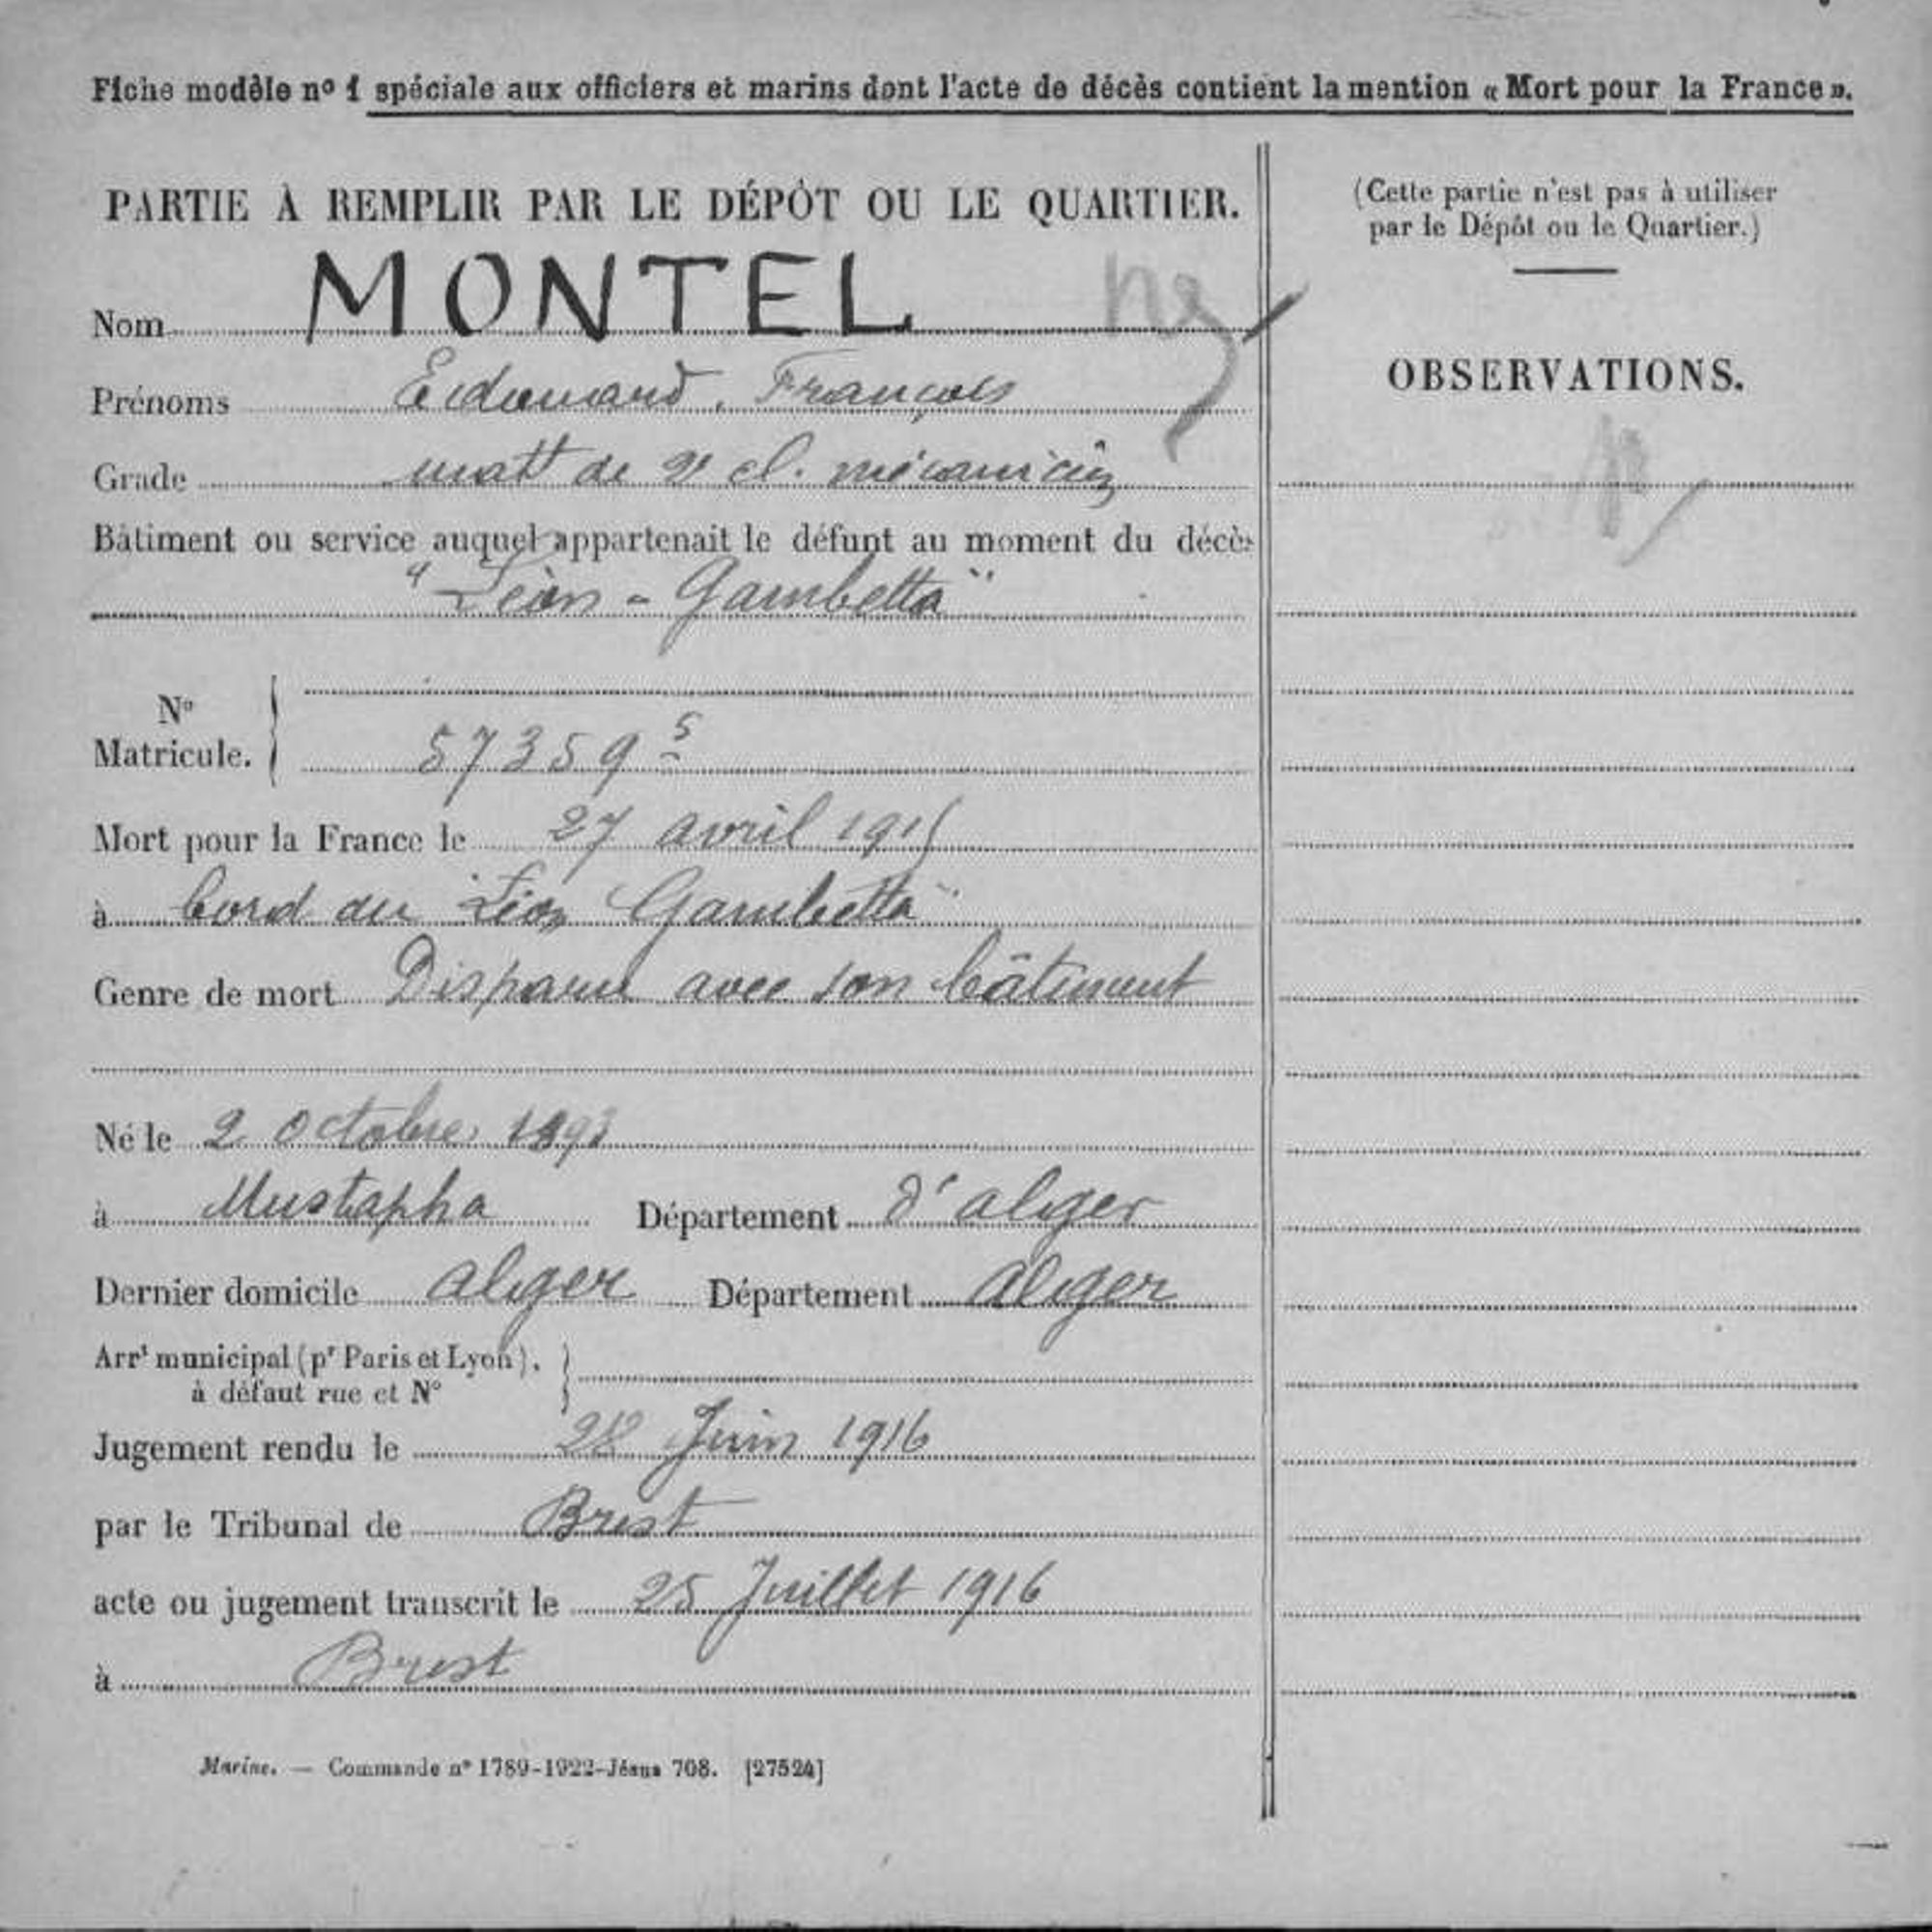 Fiche modèle nº 1 spéciale aux officiers et marins dont l'acte de décès contient la mention « Mort pour la France ».
PARTIE À REMPLIR PAR LE DÉPÔT OU LE QUARTIER.
Nom MONTEL
Prénoms Edouard, François
Grade matt de 2e cl. mécanicien
Bâtiment ou service auquel appartenait le défunt au moment du décès
"Léon-Gambetta"
Nº
Matricule. 57359 5
Mort pour la France le 27 avril 1915
à bord du "Léon Gambetta"
Genre de mort Disparu avec son bâtiment
Né le 2 octobre 1893
à Mustapha Département d'alger
Dernier domicile alger Département alger
Arrt municipal (pr Paris et Lyon).
à défaut rue et Nº
Jugement rendu le 28 Juin 1916
par le Tribunal de Brest
acte ou jugement transcrit le 25 Juillet 1916
à Brest
Marine. — Commande nº 1789-1922-Jésus 708. [27524]
(Cette partie n'est pas à utiliser
par le Dépôt ou le Quartier.)
OBSERVATIONS.